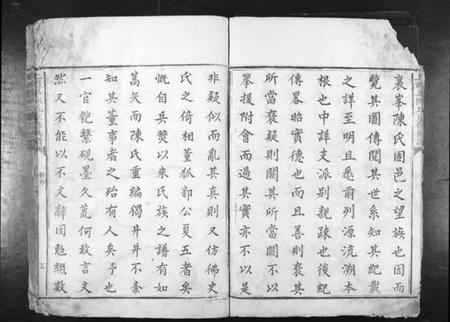 襄峯陳氏固邑之望族也因而
覽其圖傳閱其世系知其紀載
之詳至明且悉前列源流溯本
根也中詳支派別親疎也後紀
傳畧昭實德也而且善則褒其
所當褒疑則闕其所當闕不以
攀援附會而過其實亦不以是
非疑似而亂其真則又仿佛史
氏之倚相董狐郭公夏五者矣
慨自兵燹以來氏族之譜有如
蒿矣而陳氏重編獨井井不紊
知其董事者之殆有人矣予也
一官匏繫硯墨久荒何敢言文
然又不能以不文辭因勉綴數